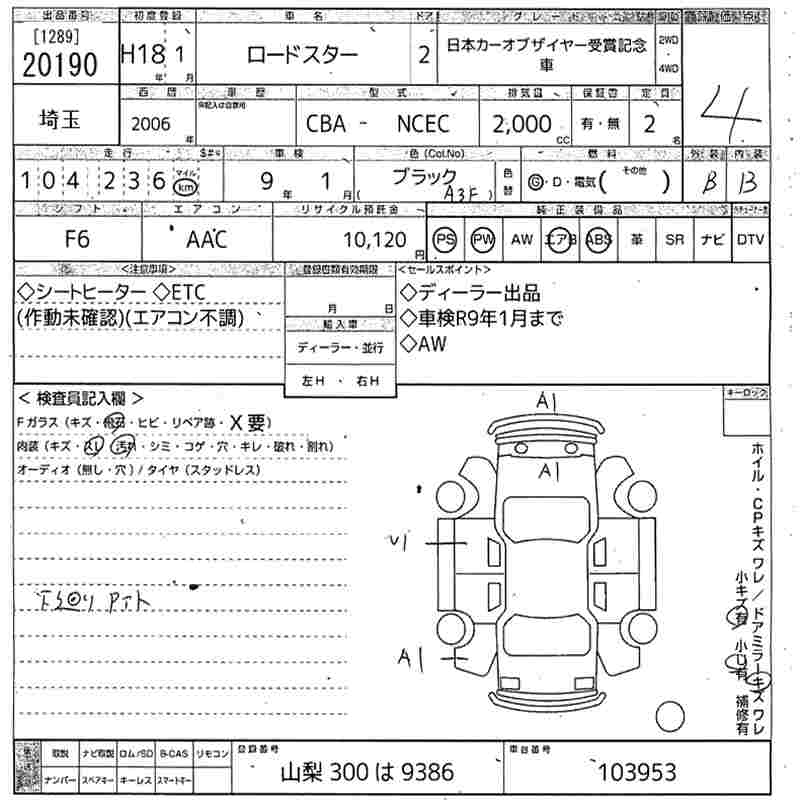 出品番号 初度登録 車名 ドア グレード
[1289]
20190 H18年 1月 ロードスター 2 日本カーオブザイヤー受賞記念車 2WD・4WD 4
埼玉 西暦 車歴 型式 排気量 保証書 定員
2006年 CBA - NCEC 2,000CC 有・無 2名
走行 車検 色(Col.No) 燃料 外装 内装
104236 マイル km 9年 1月 ブラック (A3F) 色替 G・D・電気( その他 ) B B
シフト エアコン リサイクル預託金 純正装備品
F6 AAC 10,120円 PS PW AW エアB ABS 革 SR ナビ DTV
<注意事項> 登録書類有効期限 <セールスポイント>
◇シートヒーター ◇ETC 月 日 ◇ディーラー出品
(作動未確認)(エアコン不調) 輸入車 ◇車検R9年1月まで
ディーラー・並行 ◇AW
左H ・ 右H
<検査員記入欄> キーロック
Fガラス(キズ・飛石・ヒビ・リペア跡・X要)
内装(キズ・スレ・汚れ・シミ・コゲ・穴・キレ・破れ・割れ)
オーディオ(無し・穴)/タイヤ(スタッドレス)
A1
A1
U1
A1
ホイル・CPキズワレ/ドアミラーキズワレ
小キズ有 小U有 補修有
取説 ナビ取説 ロム/SD B-CAS リモコン 登録番号 車台番号
ナンバー スペアキー キーレス スマートキー 山梨 300 は 9386 103953